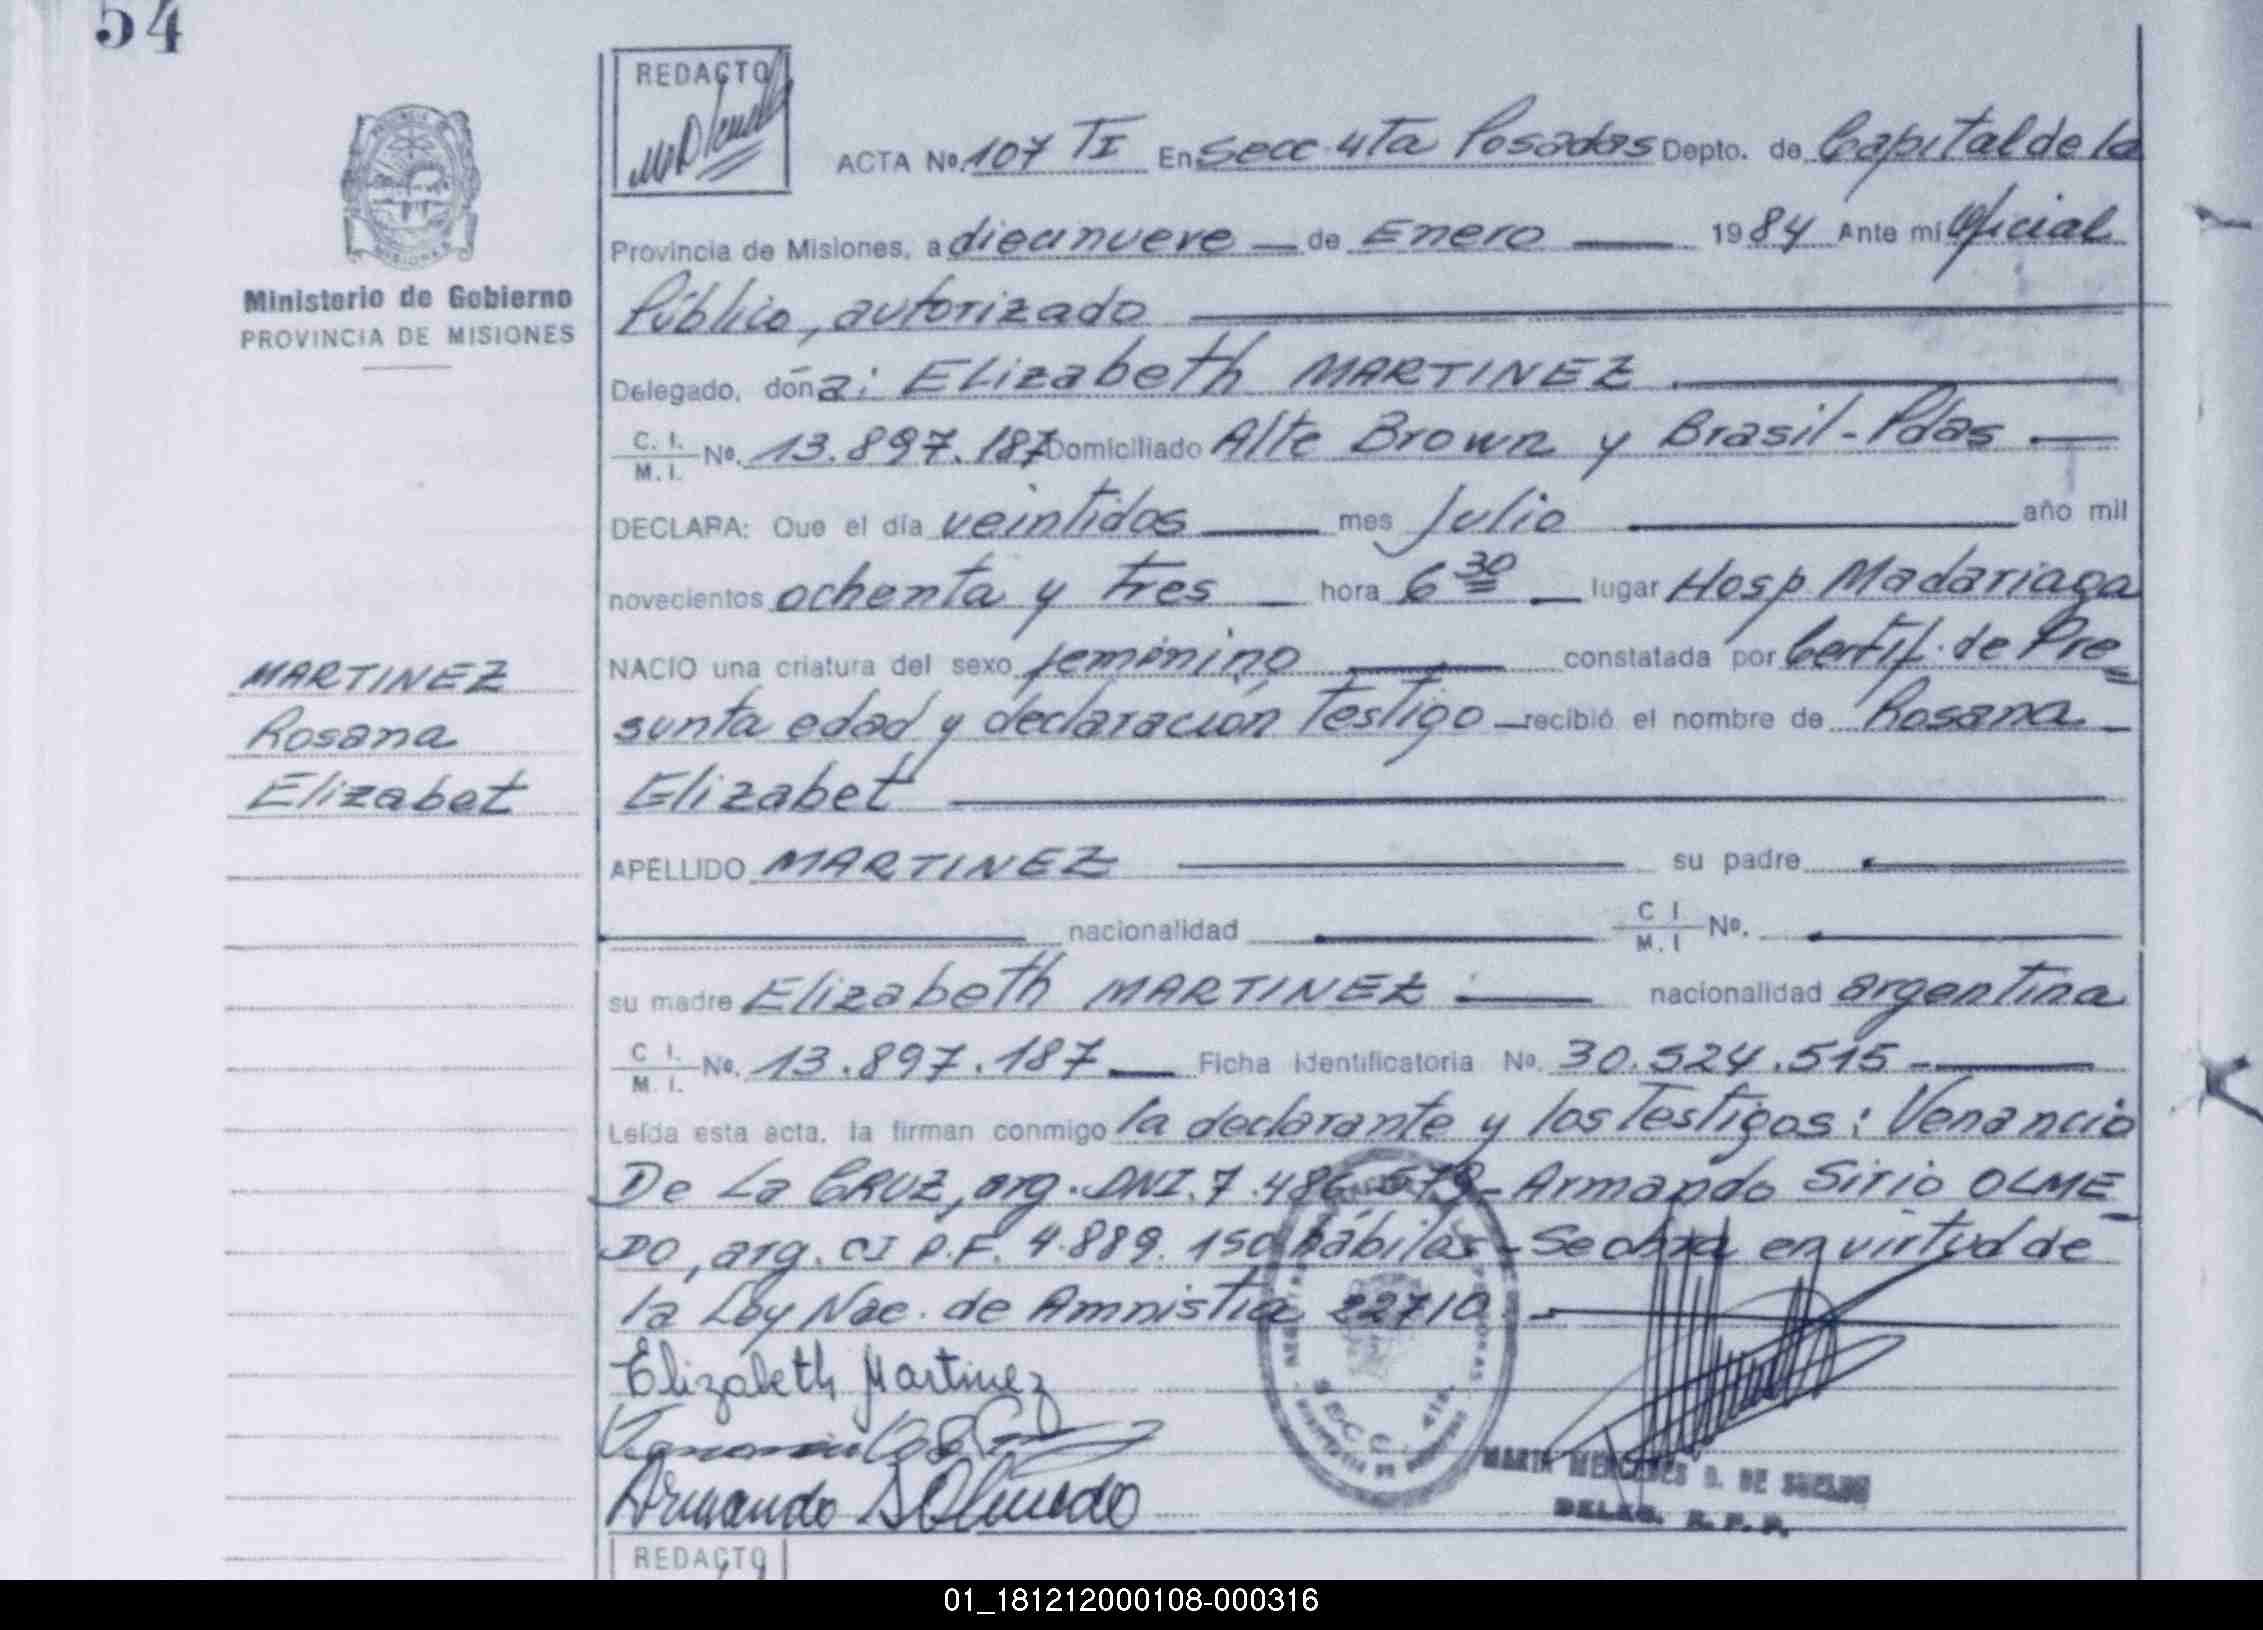 54
REDACTO
ACTA Nº. 107 TI En Secc 4ta Posadas Depto. de Capital de la
Provincia de Misiones, a diecinueve — de Enero — 1984 Ante mi Oficial
Público, autorizado
Ministerio de Gobierno
PROVINCIA DE MISIONES
Delegado, dóna: Elizabeth MARTINEZ
C. I. / M. I. Nº. 13.897.187 Domiciliado Alte Brown y Brasil - Pdas
DECLARA: Que el día veintidos mes Julio año mil
novecientos ochenta y tres hora 6 30 lugar Hosp Madariaga
NACIO una criatura del sexo femenino constatada por Certif. de Pre=
sunta edad y declaración testigo recibió el nombre de Rosana
Elizabet
MARTINEZ
Rosana
Elizabet
APELLIDO MARTINEZ su padre
nacionalidad C I / M. I Nº.
su madre Elizabeth MARTINEZ nacionalidad argentina
C I. / M. I. Nº. 13.897.187 Ficha Identificatoria Nº. 30.524.515
Leída esta acta, la firman conmigo la declarante y los testigos: Venancio
De La CRUZ, arg. DNI. 7.486. - Armando Sirio OLME
DO, arg. CI P.F. 4.889.150 hábiles - Se obra en virtud de
la Ley Nac. de Amnistia 22710
Elizabeth Martinez
Armando S Olmedo
SECC. 4ta.
MARIA MERCEDES D. DE
DELEG. R. P. P.
REDACTO
01_181212000108-000316